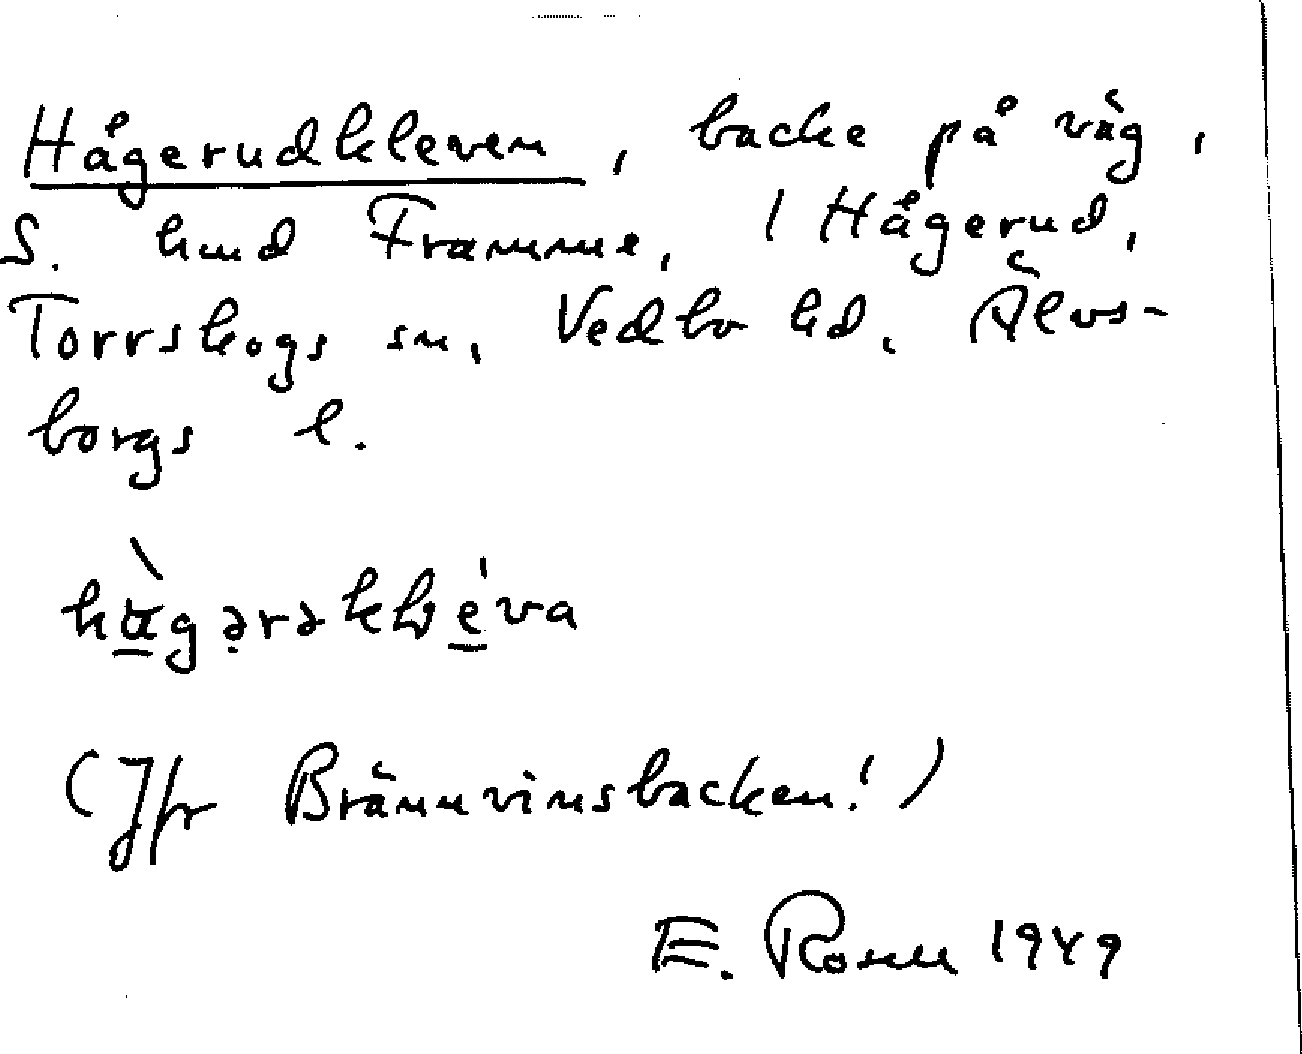 Hågerudkleven, backe på väg,
S. hmd Framme, / Hågerud,
Torrskogs sn, Vedbo hd. Älvs-
borgs l.
(Jfr Brännvinsbacken!)
E. Rosell 1949